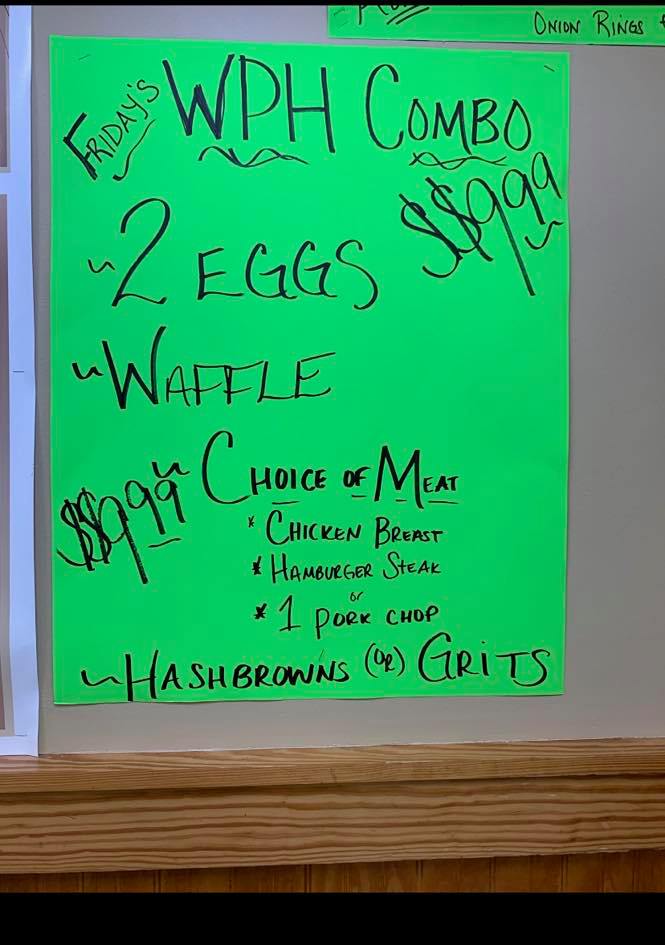 ONION RINGS
FRIDAY'S WPH COMBO
$$9.99
~2 EGGS
~WAFFLE
~CHOICE OF MEAT
$$9.99
* CHICKEN BREAST
* HAMBURGER STEAK
or
* 1 PORK CHOP
~HASHBROWNS (OR) GRITS